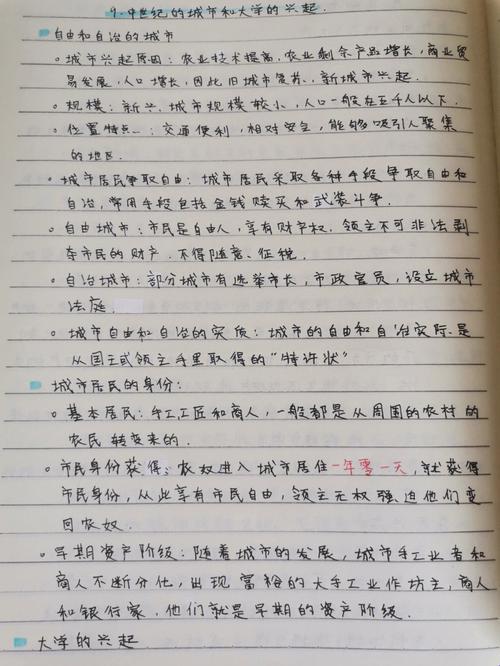 9. 中世纪的城市和大学的兴起.
自由和自治的城市
。城市兴起原因: 农业技术提高, 农业剩余产品增长, 商业贸
易发展, 人口增长, 因此旧城市复苏, 新城市兴起.
。规模: 新兴城市规模较小, 人口一般在五千人以下.
。位置特点: 交通便利, 相对安全, 能够吸引人聚集
的地区.
。城市居民争取自由: 城市居民采取各种手段争取自由和
自治, 常用手段包括金钱赎买和武装斗争.
。自由城市: 市民是自由人, 享有财产权. 领主不可非法剥
夺市民的财产. 不得随意征税.
。自治城市: 部分城市有选举市长, 市政官员, 设立城市
法庭.
。城市自由和自治的实质: 城市的自由和自治实际是
从国王或领主手里取得的"特许状"
城市居民的身份:
。基本居民: 手工工匠和商人, 一般都是从周围的农村的
农民转变来的.
。市民身份获得: 农奴进入城市居住一年零一天, 就获得
市民身份, 从此享有市民自由, 领主无权强迫他们变
回农奴.
。早期资产阶级: 随着城市的发展, 城市手工业者和
商人不断分化, 出现富裕的大手工业作坊主, 商人
和银行家, 他们就是早期的资产阶级.
大学的兴起